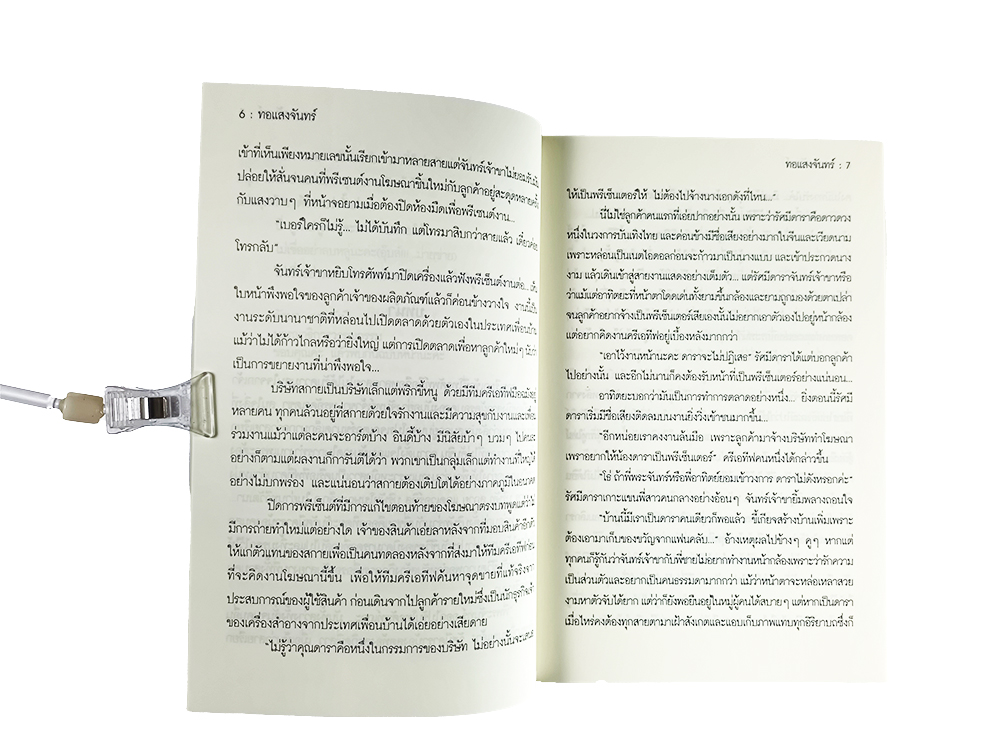 6 : ทอแสงจันทร์
เข้าที่เห็นเพียงหมายเลขนั้นเรียกเข้ามาหลายสายแต่จันทร์เจ้าขาไม่ยอมรับ
ปล่อยให้สั่นจนคนที่พรีเซนต์งานโฆษณาชิ้นใหม่กับลูกค้าอยู่สะดุดหลายครั้ง
กับแสงวาบๆ ที่หน้าจอยามเมื่อต้องปิดห้องมืดเพื่อพรีเซนต์งาน...
"เบอร์ใครก็ไม่รู้... ไม่ได้บันทึก แต่โทรมาสิบกว่าสายแล้ว เดี๋ยวค่อย
โทรกลับ"
จันทร์เจ้าขาหยิบโทรศัพท์มาปิดเครื่องแล้วฟังพรีเซ็นต์งานต่อ...
ใบหน้าพึงพอใจของลูกค้าเจ้าของผลิตภัณฑ์แล้วก็ค่อยข้างวางใจ งานนี้เป็น
งานระดับนานาชาติที่หล่อนไปเปิดตลาดด้วยตัวเองในประเทศเพื่อนบ้าน
แม้ว่าไม่ได้ก้าวไกลหรือว่ายิ่งใหญ่ แต่การเปิดตลาดเพื่อหาลูกค้าใหม่ๆ
เป็นการขยายงานที่น่าพึงพอใจ...
บริษัทสกายเป็นบริษัทเล็กแต่พริกขี้หนู ด้วยมีทีมครีเอทีฟมือฉมังอยู่
หลายคน ทุกคนล้วนอยู่ที่สกายด้วยใจรักงานและมีความสุขกับงานและเพื่อน
ร่วมงานแม้ว่าแต่ละคนจะอาร์ตบ้าง อินดี้บ้าง มีนิสัยบ้าๆ บวมๆ ไปคนละ
อย่างก็ตามแต่ผลงานก็การันตีได้ว่า พวกเขาเป็นกลุ่มเล็กแต่ทำงานที่ใหญ่ได้
อย่างไม่บกพร่อง และแน่นอนว่าสกายต้องเติบโตได้อย่างภาคภูมิในอนาคต
ปิดการพรีเซ็นต์ที่มีการแก้ไขตอนท้ายของโฆษณาตรงบทพูดแต่ว่าไม่
มีการถ่ายทำใหม่แต่อย่างใด เจ้าของสินค้าเอ่ยลาหลังจากที่มอบสินค้าอีกตัว
ให้แก่ตัวแทนของสกายเพื่อเป็นคนทดลองหลังจากที่ส่งมาให้ทีมครีเอทีฟก่อน
ที่จะคิดงานโฆษณานี้ขึ้น เพื่อให้ทีมครีเอทีฟค้นหาจุดขายที่แท้จริงจาก
ประสบการณ์ของผู้ใช้สินค้า ก่อนเดินจากไปลูกค้ารายใหม่ซึ่งเป็นนักธุรกิจเจ้า
ของเครื่องสำอางจากประเทศเพื่อนบ้านได้เอ่ยอย่างเสียดาย
"ไม่รู้ว่าคุณดาราคือหนึ่งในกรรมการของบริษัท ไม่อย่างนั้นจะเสนอ
ทอแสงจันทร์ : 7
ให้เป็นพรีเซ็นเตอร์ให้ ไม่ต้องไปจ้างนางเอกดังที่ไหน..."
นี่ไม่ใช่ลูกค้าคนแรกที่เอ่ยปากอย่างนั้น เพราะว่ารัศมีดาราคือดาวดวง
หนึ่งในวงการบันเทิงไทย และค่อนข้างมีชื่อเสียงอย่างมากในจีนและเวียดนาม
เพราะหล่อนเป็นเนตไอดอลก่อนจะก้าวมาเป็นนางแบบ และเข้าประกวดนาง
งาม แล้วเดินเข้าสู่สายงานแสดงอย่างเต็มตัว... แต่รัศมีดาราจันทร์เจ้าขาหรือ
ว่าแม้แต่อาทิตยะที่หน้าตาโดดเด่นทั้งยามขึ้นกล้องและยามถูกมองด้วยตาเปล่า
จนลูกค้าอยากจ้างเป็นพรีเซ็นเตอร์เสียเองนั้นไม่อยากเอาตัวเองไปอยู่หน้ากล้อง
แต่อยากคิดงานครีเอทีฟอยู่เบื้องหลังมากกว่า
"เอาไว้งานหน้านะคะ ดาราจะไม่ปฏิเสธ" รัศมีดาราได้แต่บอกลูกค้า
ไปอย่างนั้น และอีกไม่นานก็คงต้องรับหน้าที่เป็นพรีเซ็นเตอร์อย่างแน่นอน...
อาทิตยะบอกว่ามันเป็นการทำการตลาดอย่างหนึ่ง... ยิ่งตอนนี้รัศมี
ดาราเริ่มมีชื่อเสียงติดลมบนงานยิ่งวิ่งเข้าชนมากขึ้น...
"อีกหน่อยเราคงงานล้นมือ เพราะลูกค้ามาจ้างบริษัททำโฆษณา
เพราอยากให้น้องดาราเป็นพรีเซ็นเตอร์" ครีเอทีฟคนหนึ่งได้กล่าวขึ้น
"โธ่ ถ้าพี่พระจันทร์หรือพี่อาทิตย์ยอมเข้าวงการ ดาราไม่ดังหรอกค่ะ"
รัศมีดาราเกาะแขนพี่สาวคนกลางอย่างอ้อนๆ จันทร์เจ้าขายิ้มพลางถอนใจ
"บ้านนี้มีเราเป็นดาราคนเดียวก็พอแล้ว ขี้เกียจสร้างบ้านเพิ่มเพราะ
ต้องเอามาเก็บของขวัญจากแฟนคลับ..." อ้างเหตุผลไปข้างๆ คูๆ หากแต่
ทุกคนก็รู้กันว่าจันทร์เจ้าขากับพี่ชายไม่อยากทำงานหน้ากล้องเพราะว่ารักความ
เป็นส่วนตัวและอยากเป็นคนธรรมดามากกว่า แม้ว่าหน้าตาจะหล่อเหลาสวย
งามหาตัวจับได้ยาก แต่ว่าก็ยังพอยืนอยู่ในหมู่ผู้คนได้สบายๆ แต่หากเป็นดารา
เมื่อไหร่คงต้องทุกสายตามาเฝ้าสังเกตและแอบเก็บภาพแทบทุกอิริยาบถซึ่งก็